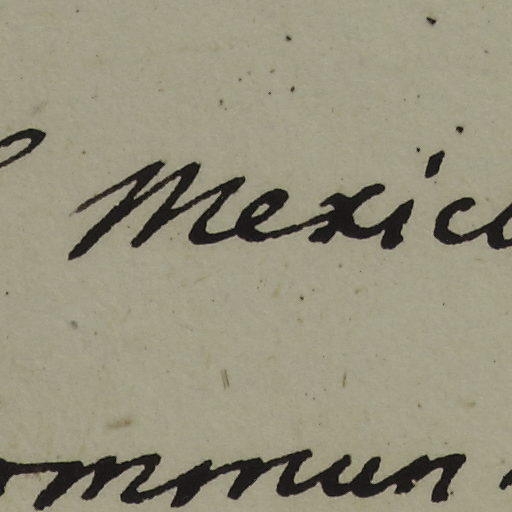 Mexico
ommun